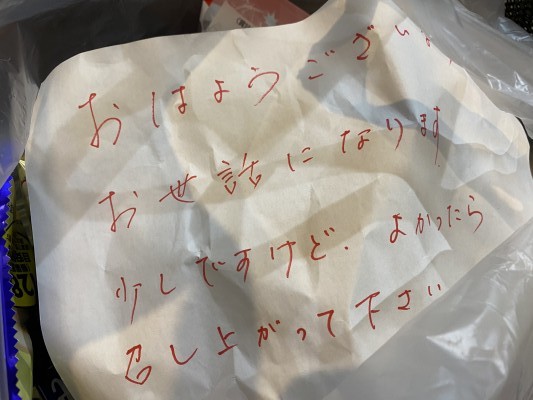 おはようござい
お世話になります
少しですけど、よかったら
召し上がって下さい